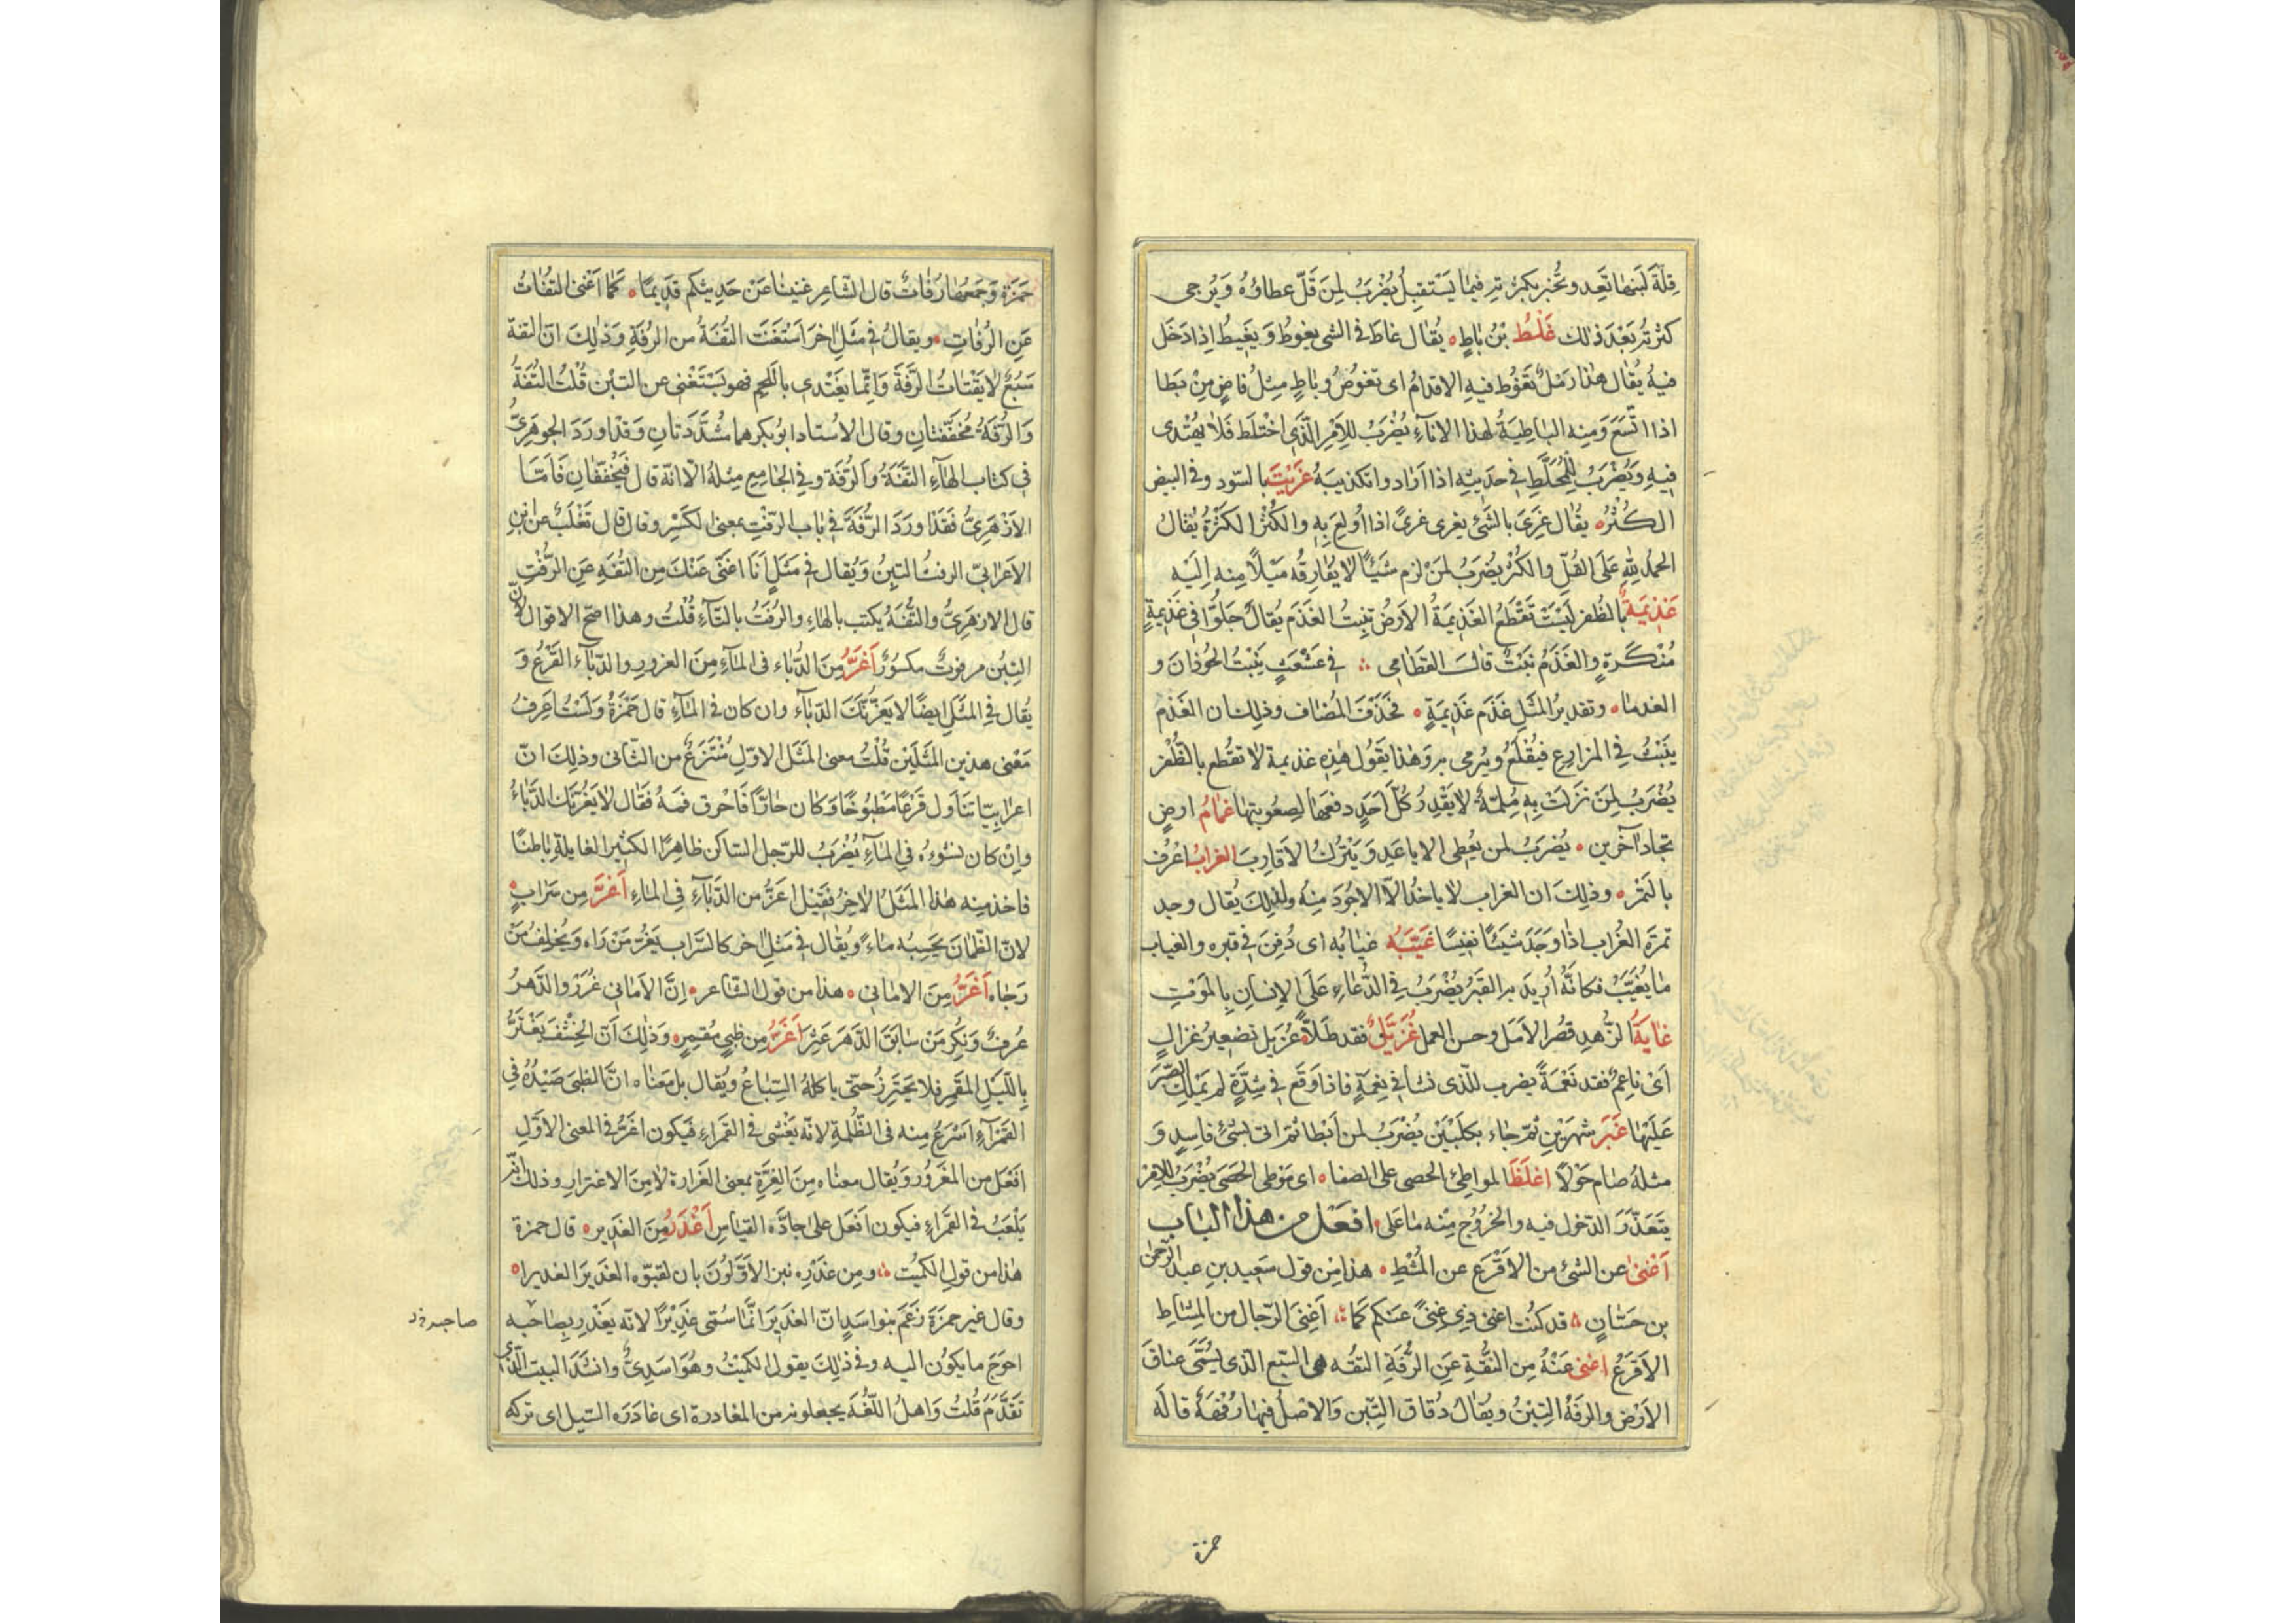 قِلّة لَبَنها تَعِد وتُخبر بكثرته فيما يَسْتقبِلُ يُضْرَبُ لِمَن قَلّ عطاؤه وَيُرجى
كثرتُه بَعْدَ ذٰلك غَلْطُ بْنُ بٰاطٍ يُقٰال غاطَ فى الشى يغوطُ وَيَغيطُ اِذا دَخَل
فيهُ يُقال هٰذا رَمْلٌ تَغوُط فيهِ الاقدامُ اى تغوُصُ وبٰاطٍ مِثلُ قاضٍ مِنْ بَطا
اذا اتّسَعَ وَمِنه البٰاطِيَةُ لهذا الانآءِ يُضْرَبُ للاَمِر الّذى اخْتلَط فَلاٰ يُهْتدى
فيهِ وَيُضْرَبُ للِمُخَلّطِ فى حدَيثِهِ اذا اَرٰاد وا تكذيبَهُ غَرِيْتَ بالسّود وفى البيض
الكُثْرُه يقُال غَرِىَ بالشَّئِ يغرى غرىً اذا اُولِعَ بِهِ والكُثْرُ الكَثْرةُ يُقالُ
الحمدُ للهِ عَلَى القُلّ والكُثْر يُضرَبُ لمَنْ لزم شَيْئاً لا يفُارِقُه مَيْلاً منِه اِلَيْه
غَذِيَمةٌ بالظُفر لَيْسَتْ تَقْطَعُ الغَذيمَةُ الاَرضُ تنبِتُ الغَذَم يُقالُ حَلوُّا فى غذيمةٍ
مُنْكَرةٍ والغَذَمُ نبَتٌ قال القطامى فى عَثْعَثٍ يَنْبتُ الحُوذانَ و
الغدما وتقديرُ المثَلِ غَذَم غَذِيمَةٍ فحَذَفَ المُضاف وذلِك ان الغَذَم
يَنْبُتُ فى المزارعِ فيُقْلَعُ ويُرمى به وَهٰذا يَقُول هٰذِه غذيمة لاٰ تقُطع بالظُّفر
يُضْرَبُ لِمَنْ نزَلَتْ بِه مُلِمّةٌ لاٰ يَقْدِرُ كُلّ اَحَدٍ دفعَهٰا لِصعُوبتِهٰا غمٰامُ ارضٍ
تجادُ آخَرين يُضرَبُ لمن يُعْطى الاباعَدِ وَيَتْرُكُ الاَقارِبَ الغرابُ اعْرفُ
بالتمْر وذلِكَ ان الغراب لاٰ ياخذُ الاّ الاجْوَدَ مِنْهُ ولذلِكَ يُقال وجد
تمرَةَ الغُرٰاب اذٰا وَجَدَ شَيْئاً نفيسًا غَيّبَهُ غيٰابُه اى دُفِنَ فى قبره والغياب
مٰا يُغَيّبُ فكانّهُ اُريدَ به القبَرُ يُضْرَبُ فى الدُّعاءِ عَلَى الاِنسانِ بِالمَوْتِ
غايَةُ الزُهدِ قصْر الاَمَل وحسن العمل غُزَيّلٌ فقد طَلاًّ غُزَيل تصْغيرُ غزالٍ
اَىْ ناعِمٌ فقد نَعْمَةً يضرب للّذى نشأ فى نِعْمةٍ فاذا وقَع فى شِدَّةٍ لم يَمْلِك الصّبْرَ
عَلَيْها غَبَرَ شهرَيْنِ ثمّ جٰاء بكلبَيْنِ يُضْرَبُ لمن اَبْطا ثمّ اتى بشئٍ فاسِدٍ وَ
مثلهُ صٰام حَوْلاً اغلظَ المواطِئ الحصى على الصفا اى مَوْطِى الحَصَى يُضْربُ للاِمْر
يتعَذّرُ الدّخول فيه والخُرُوج مِنْه مٰا عَلى افعَل من هٰذا البٰاب
اَغْنىٰ عن الشئ من الاَقْرع عن المُشْطِ هذا مِن قول سَعيد بنِ عبد الرّحمٰن
بن حَسّان قد كنُت اغنى ذِى غِنىً عنَكم كَما اَغنَى الرّجال من المِشاطِ
الاَقرَعُ اغنى عَنْهُ مِن التُفَّةِ عَنِ الرُّفَةِ التفّه هى السّبع الّذى يُسَمَّى عناقَ
الاَرض والرُفَةُ التِبْنُ ويقُالُ دُقاق التِبّن وَالاصْلُ فيهٰا رُفْهَةٌ قالَه
حمزة
حَمَزة وَجَمعُهٰا رُفاتٌ قال الشّاعر غنينٰا عَنْ حَديثِكم قدَيمًا كما اَغنىٰ التفُٰاتُ
عَنِ الرُفاتِ ويقالُ فى مثَلٍ آخرَ اَسْتَغنَت التُفةُ من الرُفَةِ وَذٰلِكَ انّ التفة
سَبُعٌ لاٰ يَقْتاتُ الرُّفَةَ وَاِنمّا يغَتْدى باللحمِ فهو يَسْتَغْنى عن التبْن قُلْتُ التُفةُ
وَالرُفَةُ مخُفّفتانِ وقال الاسُتاد ابوُ بكر هما مشُدَّدتانِ وَقَدْ اورَدَ الجوهَرِىُّ
فى كتاب الهٰآءِ التفَةُ والرُفَة وفى الجٰامِعِ مِثلهُ الّا انّه قال يُخَفّفانِ فَامّا
الاَزْهَرِىُّ فقَدْ اورَدَ الرُّفَةَ فى بابِ الرّفْتِ بمعنى الكَسْرِ وقال قال ثَعْلَبٌ عن ابنِ
الاَعرابىّ الرفتُ التبِنُ وَيُقال فى مثَلٍ اَنا اغنىَ عَنْكَ مِن التُفَهِ عَنِ الرُفْتِ
قال الازهَرِىُّ والتُّفَهُ يكتب بالهٰاءِ والرُفتُ بالتّآءِ قُلْتُ وهذا اصح الاقوال لانّ
التبنُ مرفوتٌ مكسُوَرٌ اَغَرُّ مِنَ الدُّبٰاء فى المٰآءِ مِنَ الغرورِ والدبّآء القَرْعُ وَ
يقُال فى المثَلِ ايضًا لا يَغرّنّكَ الدّبّآء وان كان فى المآءِ قال حَمْزَةُ وَلَسْتُ اعَرِفُ
مَعْنى هذين المثَلَيْن قُلْتُ معنى المَثَل الاوّلِ مُنْتَزعٌ من الثّانى وذلِكَ انّ
اعرٰابيّا تنٰاوَل قَرْعًا مَطْبوُخًا وَكان حٰارّاً فَاحْرق فمَهُ فقَال لاٰ يَغُرّنّك الدُّبّاءُ
وان كان نشُوءُهُ فى المآءِ يُضْرَبُ للرّجل السّاكن ظاهِرًا الكثيرِ الغايلةِ باطنًا
فاخذ منِه هٰذا المَثَلُ الاٰخِرُ فقَيْل اغَرُّ من الدُبّآءِ فى المٰاءِ اَغَرُّ مِن سَرٰابٍ
لانّ الظَّمٰانَ يحَسِبُه ماءً ويُقٰال فى مَثلٍ آخر كالسَّراب يَغرُّ مَنْ رَاه وَيُخلِفُ مَنْ
رَجٰاه اَغَرُّ مِنَ الامٰانى هذا من قول الشاعر اِنَّ الاَمانى غَرَرٌ والدَّهرُ
عُرفٌ وَنكُر مَنْ سٰابَقَ الدّهرَ عَثَر اَغَرُّ من ظبىٍ مُقمِرٍ وَذٰلِكَ اَنّ الخِشْفَ يَغْتَرُّ
بِاللّيلِ المُقْمِر فلا يحَتَرِزُ حتّى ياكلهُ السِّباعُ ويُقال بل مَعنٰاه انَّ الظبىَ صَيْدُهُ فى
القَمْرآءِ اسَرْعُ مِنه فى الظُلمةِ لانّه يَعْشى فى القَمرٰاءِ فيكون اغَرُّ فى المعنى الاوّلِ
افْعَل من المَغرُورِ وَيُقال معنٰاه مِنَ الغِرّةِ بمعنى الغَرارة لاٰ مِنَ الاغترارِ وذلك انّه
يَلْعَبُ فى القَمرٰاءِ فيكون اَفعَل علىٰ جادّه القيٰاسِ اَغْدَرُ مِنَ الغَديرِ قال حمزة
هٰذا من قولِ الكميْت ومِن غَدْرِه نبز الاَوّلوُنَ بان لقبّوه الغَديرَ الغديرا
وقال غير حمزَةَ زَعَم بنوا سَدٍ انّ الغدَيرَ انّمٰا سُمّى غدَيْرًا لانّه يَغْدِر بِصٰاحبه
صاحبه
احوجَ مٰا يكوُن اليه وفى ذٰلِكَ يقول الكميْتُ وهُوَ اسَدِىٌّ وانشَدَ البيت الّذى
تقَدّمَ قُلتُ وَاهلُ اللّغُة يجعلونه من المغادرة اى غادَرَه السّيل اى تركه